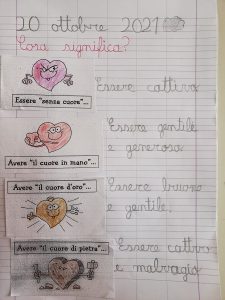 20 ottobre 2021
Cosa significa?
Essere "senza cuore"...
Essere cattivo
Avere "il cuore in mano"...
Essere gentile
e generoso
Avere "il cuore d'oro"...
Essere buono
e gentile.
Avere "il cuore di pietra"...
Essere cattivo
e malvagio